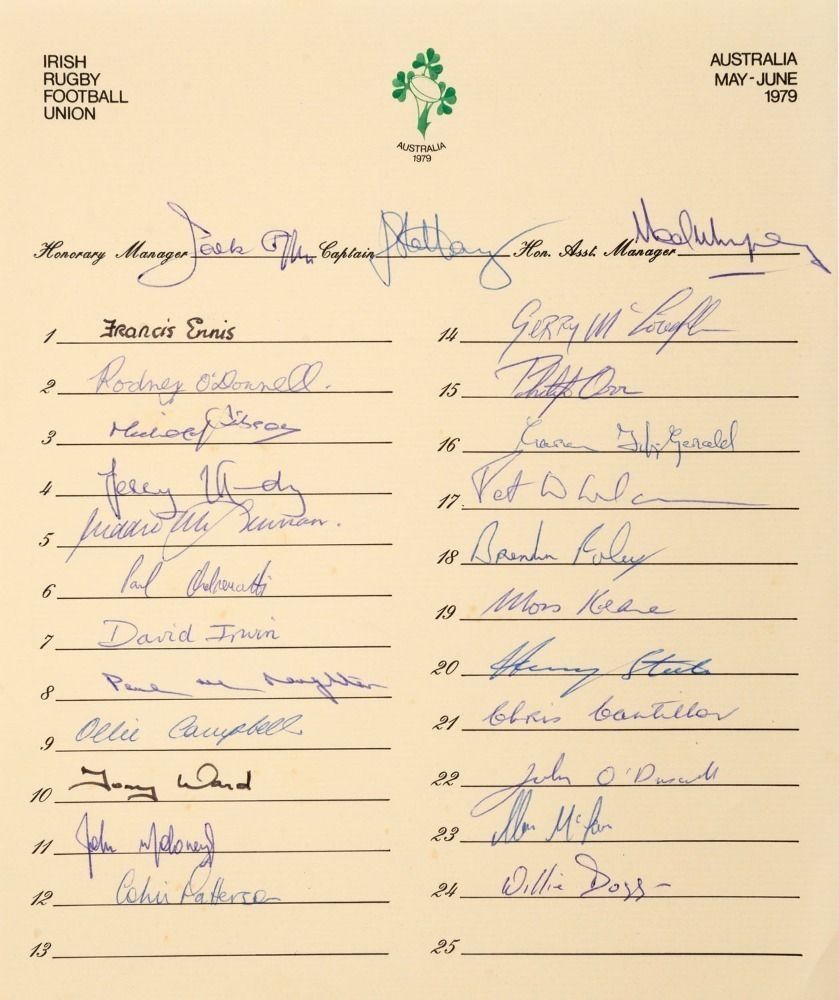 IRISH
RUGBY
FOOTBALL
UNION
AUSTRALIA
MAY-JUNE
1979
AUSTRALIA
1979
Honorary Manager Jack Captain Hon. Asst. Manager
1 Francis Ennis
2 Rodney O'Donnell.
3 Michael Gibson
4
5
6 Paul
7 David Irwin
8 Paul McNaughton
9 Ollie Campbell
10 Tony Ward
11 John Moloney
12 Colin Patterson
13
14 Gerry McLoughlin
15 Philip Orr
16 Ciaran Fitzgerald
17 Pat Whelan
18 Brendan Foley
19 Moss Keane
20 Harry Steele
21 Chris Cantillon
22 John O'Driscoll
23
24 Willie Duggan
25